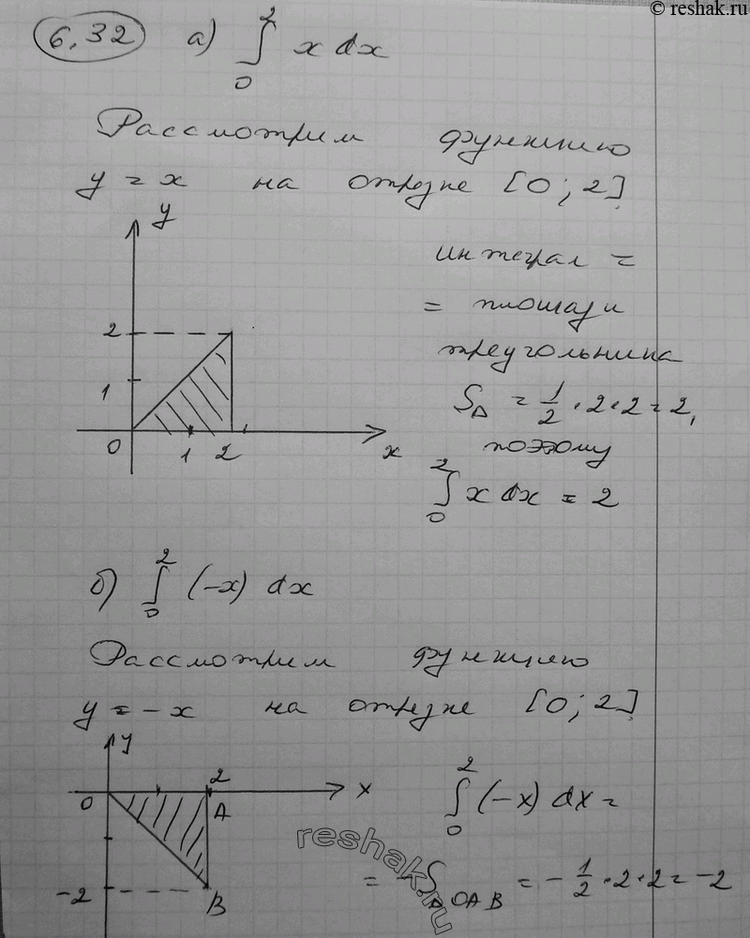 © reshak.ru
6,32 а) ∫₀² x dx
Рассмотрим функцию
y = x на отрезке [0; 2].
y
2
1
0
1 2
x
интеграл =
= площади
треугольника
S_Δ = 1/2 · 2 · 2 = 2,
поэтому
∫₀² x dx = 2
б) ∫₀² (-x) dx
Рассмотрим функцию
y = -x на отрезке [0; 2]
y
0 2 x
A
-2
B
∫₀² (-x) dx =
= -S_ΔOAB = -1/2 · 2 · 2 = -2
reshak.ru